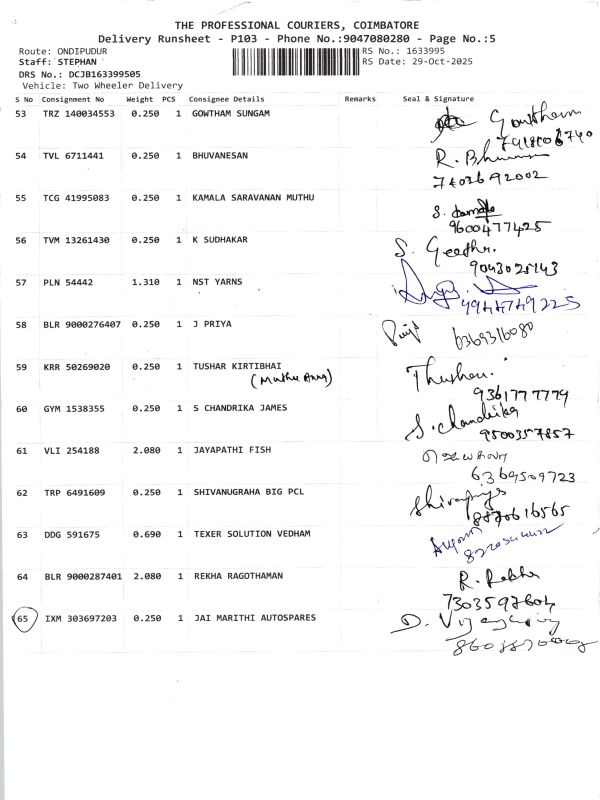 THE PROFESSIONAL COURIERS, COIMBATORE
Delivery Runsheet - P103 - Phone No.:9047080280 - Page No.:5
Route: ONDIPUDUR RS No.: 1633995
Staff: STEPHAN RS Date: 29-Oct-2025
DRS No.: DCJB163399505
Vehicle: Two Wheeler Delivery
S No Consignment No Weight PCS Consignee Details Remarks Seal & Signature
53 TRZ 140034553 0.250 1 GOWTHAM SUNGAM Gowtham
54 TVL 6711441 0.250 1 BHUVANESAN R.
7402692002
55 TCG 41995083 0.250 1 KAMALA SARAVANAN MUTHU S.
9600477425
56 TVM 13261430 0.250 1 K SUDHAKAR S.
9043025143
57 PLN 54442 1.310 1 NST YARNS
58 BLR 9000276407 0.250 1 J PRIYA 6369316080
59 KRR 50269020 0.250 1 TUSHAR KIRTIBHAI
9361777779
60 GYM 1538355 0.250 1 S CHANDRIKA JAMES S. Chandrika
9500357857
61 VLI 254188 2.080 1 JAYAPATHI FISH
6369509723
62 TRP 6491609 0.250 1 SHIVANUGRAHA BIG PCL
8870616565
63 DDG 591675 0.690 1 TEXER SOLUTION VEDHAM
64 BLR 9000287401 2.080 1 REKHA RAGOTHAMAN R. Rekha
7303597604
65 IXM 303697203 0.250 1 JAI MARITHI AUTOSPARES D.